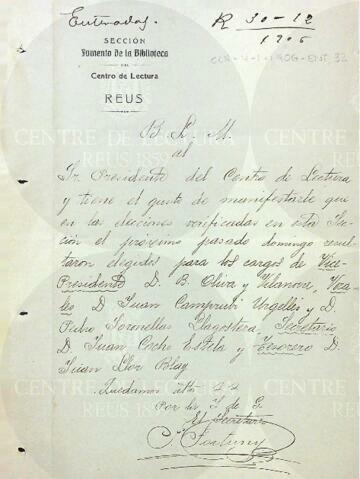 Enterados.
R 30-12
1906
SECCIÓN
Fomento de la Biblioteca
DEL
Centro de Lectura
REUS
CLR-4-1-1906-Ent. 32
B. L. M.
al
Sr. Presidente del Centro de Lectura
y tiene el gusto de manifestarle que
en las elecciones verificadas en esta Sec-
ción el próximo pasado domingo resul-
taron elegidos para los cargos de Vice-
Presidente D. B. Oliva y Vilanova, Voca-
les D. Juan Camprubí Urgellés y D.
Pedro Toronellas Llagostera, Secretario
D. Juan Coche Estela y Tesorero D.
Juan Llor Blay
Quedamos
Por la J. de G.
El Secretario
Fortuny
CENTRE DE LECTURA
REUS 1859